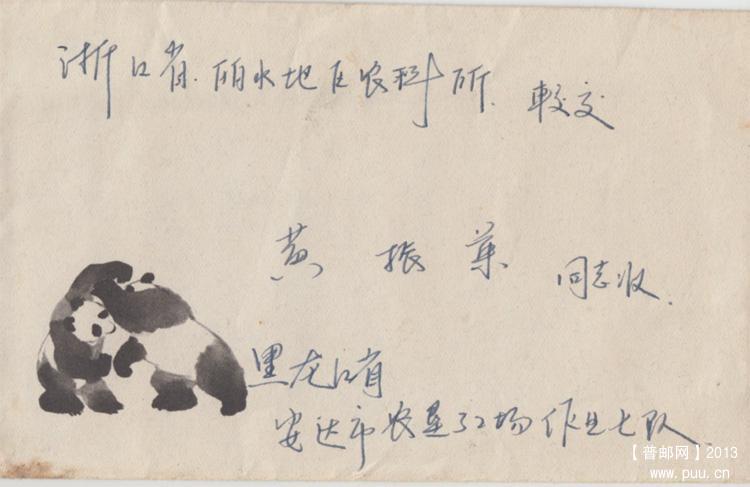 浙江省.丽水地区农科所. 转交
黄振業 同志收.
黑龙江省
安达市农垦32场作业七队.
【普邮网】2013
www.puu.cn